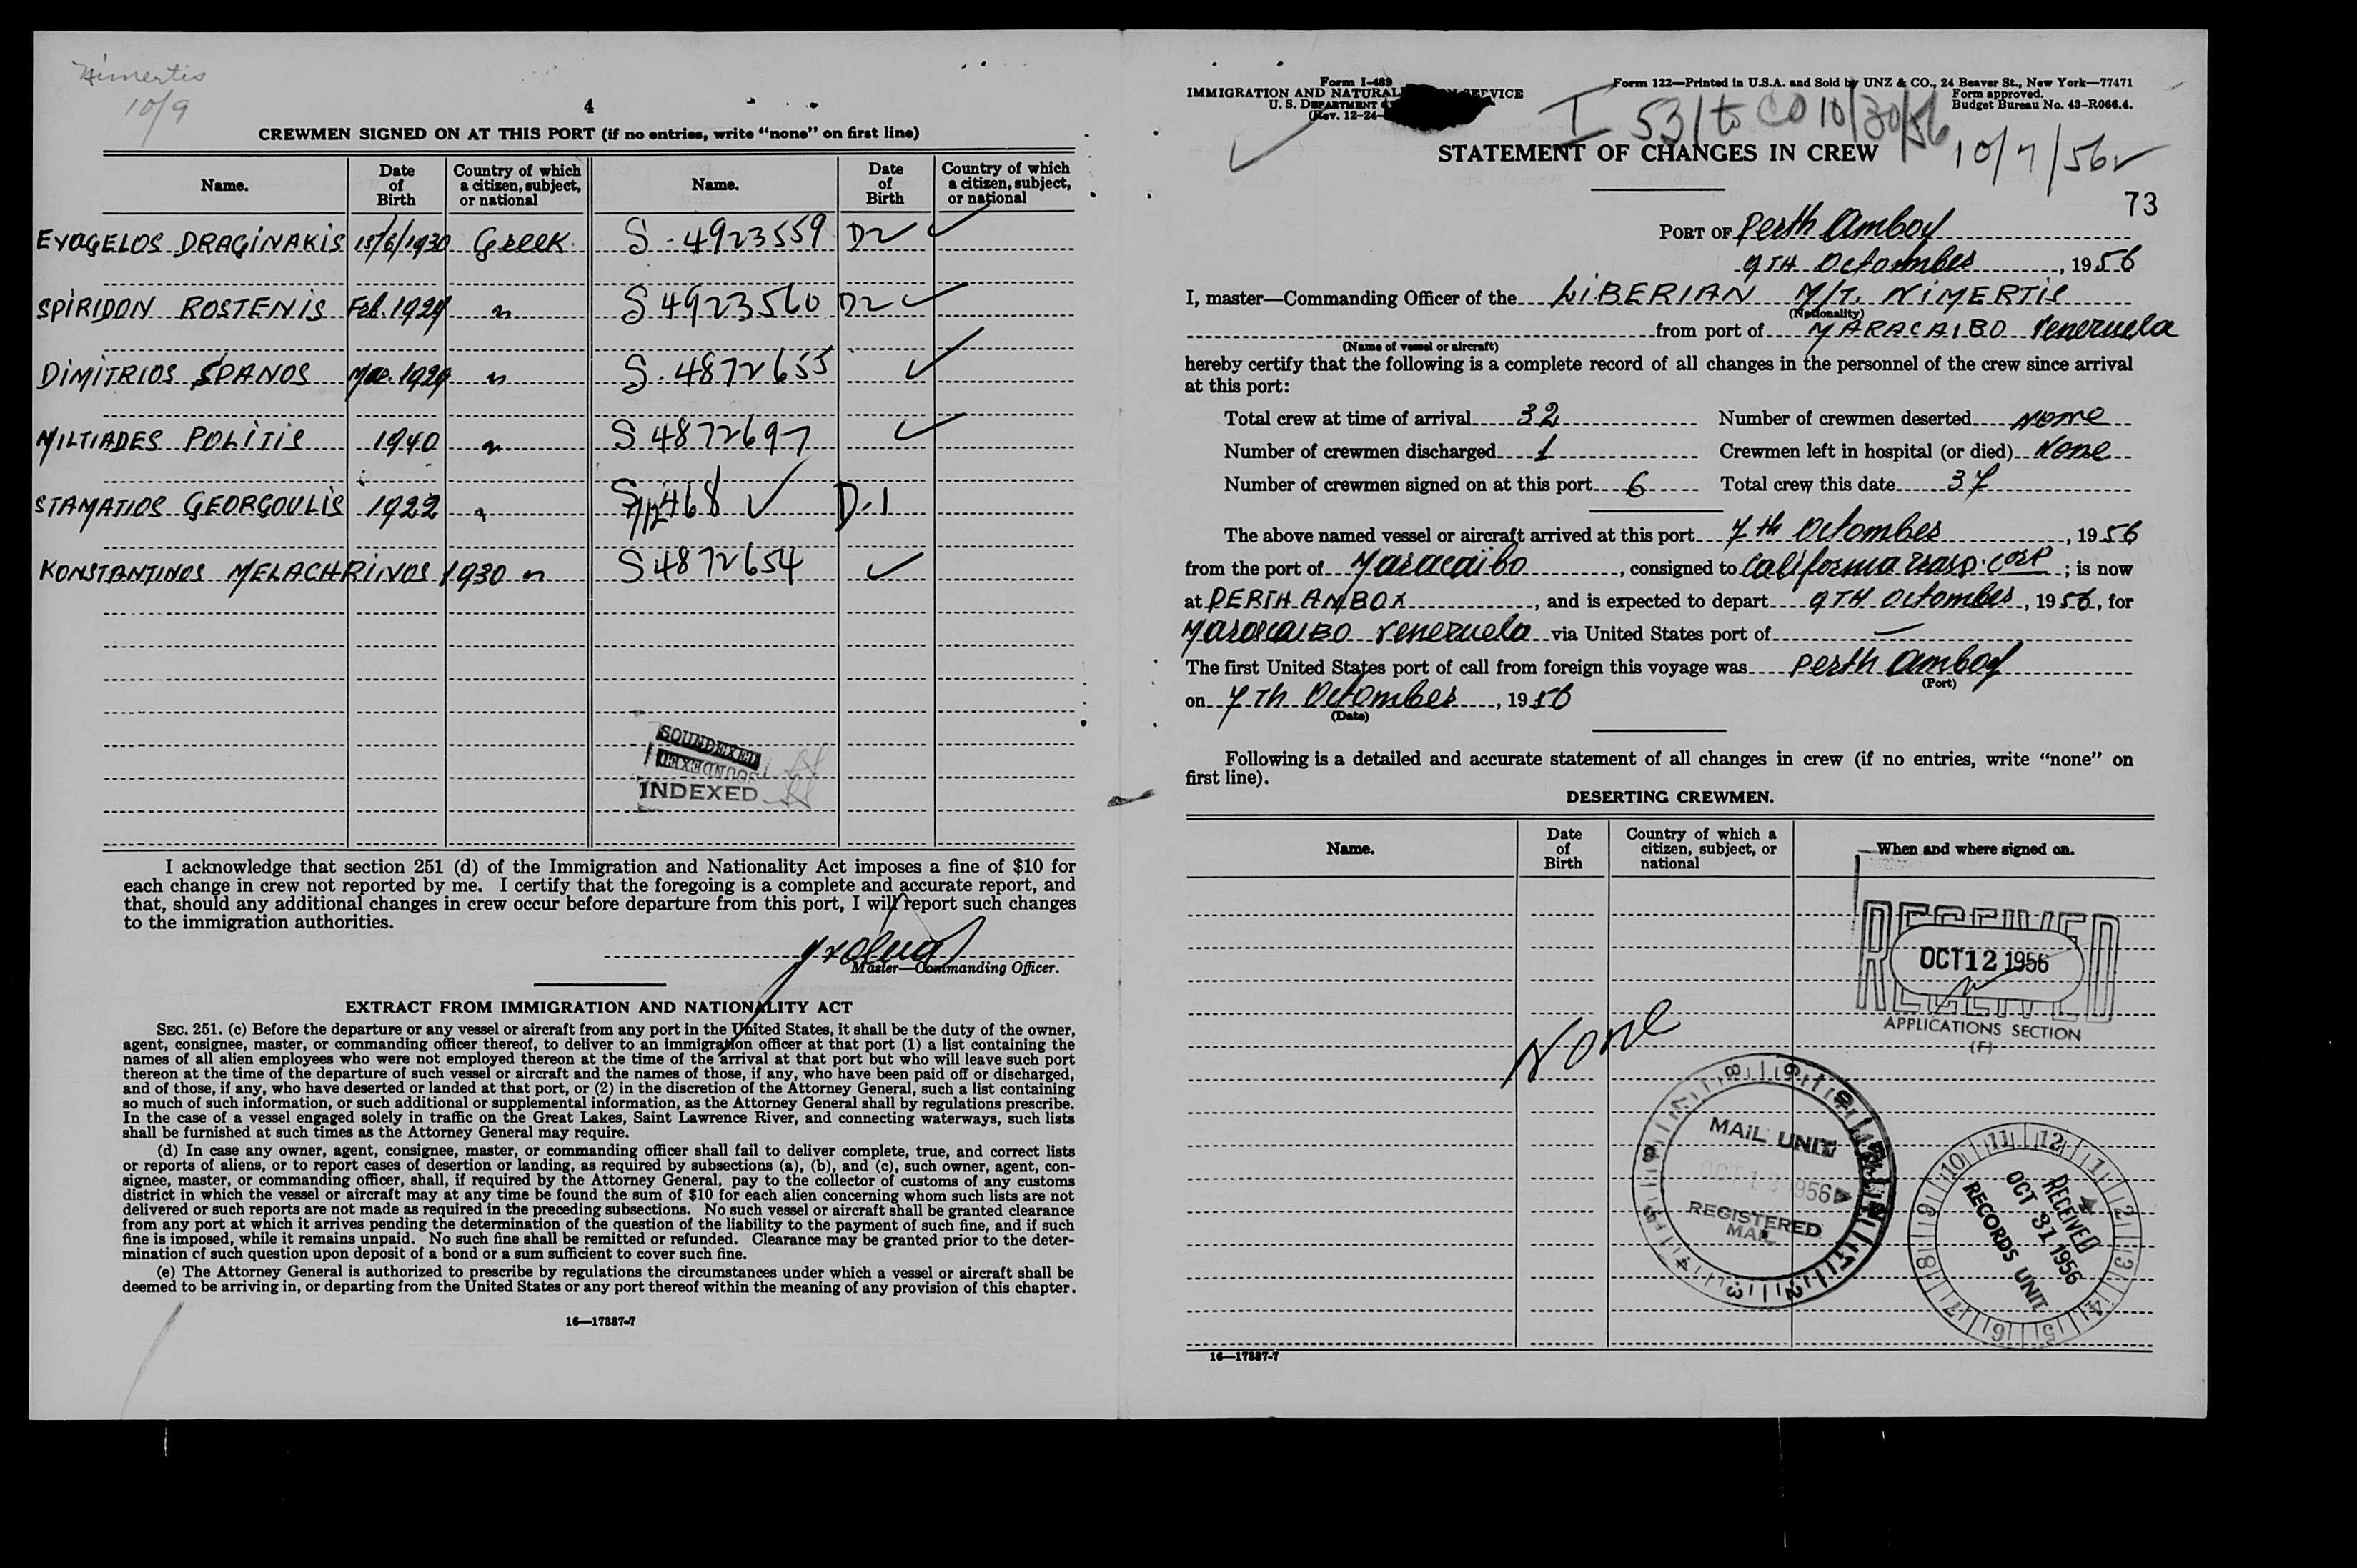 Nimertis
10/9
4
CREWMEN SIGNED ON AT THIS PORT (if no entries, write "none" on first line)
Name. Date of Birth Country of which a citizen, subject, or national Name. Date of Birth Country of which a citizen, subject, or national
EVAGELOS DRAGINAKIS 15/6/1930 Greek S-4923559 D2 ✓
SPIRIDON ROSTENIS Feb. 1929 " S 4923560 D2 ✓
DIMITRIOS SPANOS Mar. 1929 " S-4872655 ✓
MILTIADES POLITIS 1940 " S 4872697 ✓
STAMATIOS GEORGOULIS 1922 " ✓ D-1
KONSTANTINOS MELACHRINOS 1930 " S 4872654 ✓
SOUNDEXED
SOUNDEXED
INDEXED
I acknowledge that section 251 (d) of the Immigration and Nationality Act imposes a fine of $10 for
each change in crew not reported by me. I certify that the foregoing is a complete and accurate report, and
that, should any additional changes in crew occur before departure from this port, I will report such changes
to the immigration authorities.
Master—Commanding Officer.
EXTRACT FROM IMMIGRATION AND NATIONALITY ACT
SEC. 251. (c) Before the departure or any vessel or aircraft from any port in the United States, it shall be the duty of the owner,
agent, consignee, master, or commanding officer thereof, to deliver to an immigration officer at that port (1) a list containing the
names of all alien employees who were not employed thereon at the time of the arrival at that port but who will leave such port
thereon at the time of the departure of such vessel or aircraft and the names of those, if any, who have been paid off or discharged,
and of those, if any, who have deserted or landed at that port, or (2) in the discretion of the Attorney General, such a list containing
so much of such information, or such additional or supplemental information, as the Attorney General shall by regulations prescribe.
In the case of a vessel engaged solely in traffic on the Great Lakes, Saint Lawrence River, and connecting waterways, such lists
shall be furnished at such times as the Attorney General may require.
(d) In case any owner, agent, consignee, master, or commanding officer shall fail to deliver complete, true, and correct lists
or reports of aliens, or to report cases of desertion or landing, as required by subsections (a), (b), and (c), such owner, agent, con-
signee, master, or commanding officer, shall, if required by the Attorney General, pay to the collector of customs of any customs
district in which the vessel or aircraft may at any time be found the sum of $10 for each alien concerning whom such lists are not
delivered or such reports are not made as required in the preceding subsections. No such vessel or aircraft shall be granted clearance
from any port at which it arrives pending the determination of the question of the liability to the payment of such fine, and if such
fine is imposed, while it remains unpaid. No such fine shall be remitted or refunded. Clearance may be granted prior to the deter-
mination of such question upon deposit of a bond or a sum sufficient to cover such fine.
(e) The Attorney General is authorized to prescribe by regulations the circumstances under which a vessel or aircraft shall be
deemed to be arriving in, or departing from the United States or any port thereof within the meaning of any provision of this chapter.
16—17887-7
Form I-489
IMMIGRATION AND NATURAL SERVICE
U. S. DEPARTMENT
(Rev. 12-24-
Form 122—Printed in U.S.A. and Sold by UNZ & CO., 24 Beaver St., New York—77471
Form approved.
Budget Bureau No. 43-R066.4.
I 53/to CO 10/30/56
STATEMENT OF CHANGES IN CREW
10/7/56 ✓
73
PORT OF Perth Amboy
9TH Octomber, 1956
I, master—Commanding Officer of the LIBERIAN M/T. NIMERTIS
(Nationality)
from port of MARACAIBO Venezuela
(Name of vessel or aircraft)
hereby certify that the following is a complete record of all changes in the personnel of the crew since arrival
at this port:
Total crew at time of arrival 32 Number of crewmen deserted None
Number of crewmen discharged 1 Crewmen left in hospital (or died) None
Number of crewmen signed on at this port 6 Total crew this date 37
The above named vessel or aircraft arrived at this port 7th Octomber, 1956
from the port of Maracaibo, consigned to California Trasp. Corp; is now
at PERTH AMBOY, and is expected to depart 9TH Octomber, 1956, for
MARACAIBO Venezuela via United States port of —
The first United States port of call from foreign this voyage was Perth Amboy
(Port)
on 7th Octomber, 1956
(Date)
Following is a detailed and accurate statement of all changes in crew (if no entries, write "none" on
first line).
DESERTING CREWMEN.
Name. Date of Birth Country of which a citizen, subject, or national When and where signed on.
RECEIVED
OCT 12 1956
RECEIVED
APPLICATIONS SECTION
(F)
None
MAIL UNIT
OCT 13 1956
REGISTERED
MAIL
RECEIVED
OCT 31 1956
RECORDS UNIT
16—17887-7